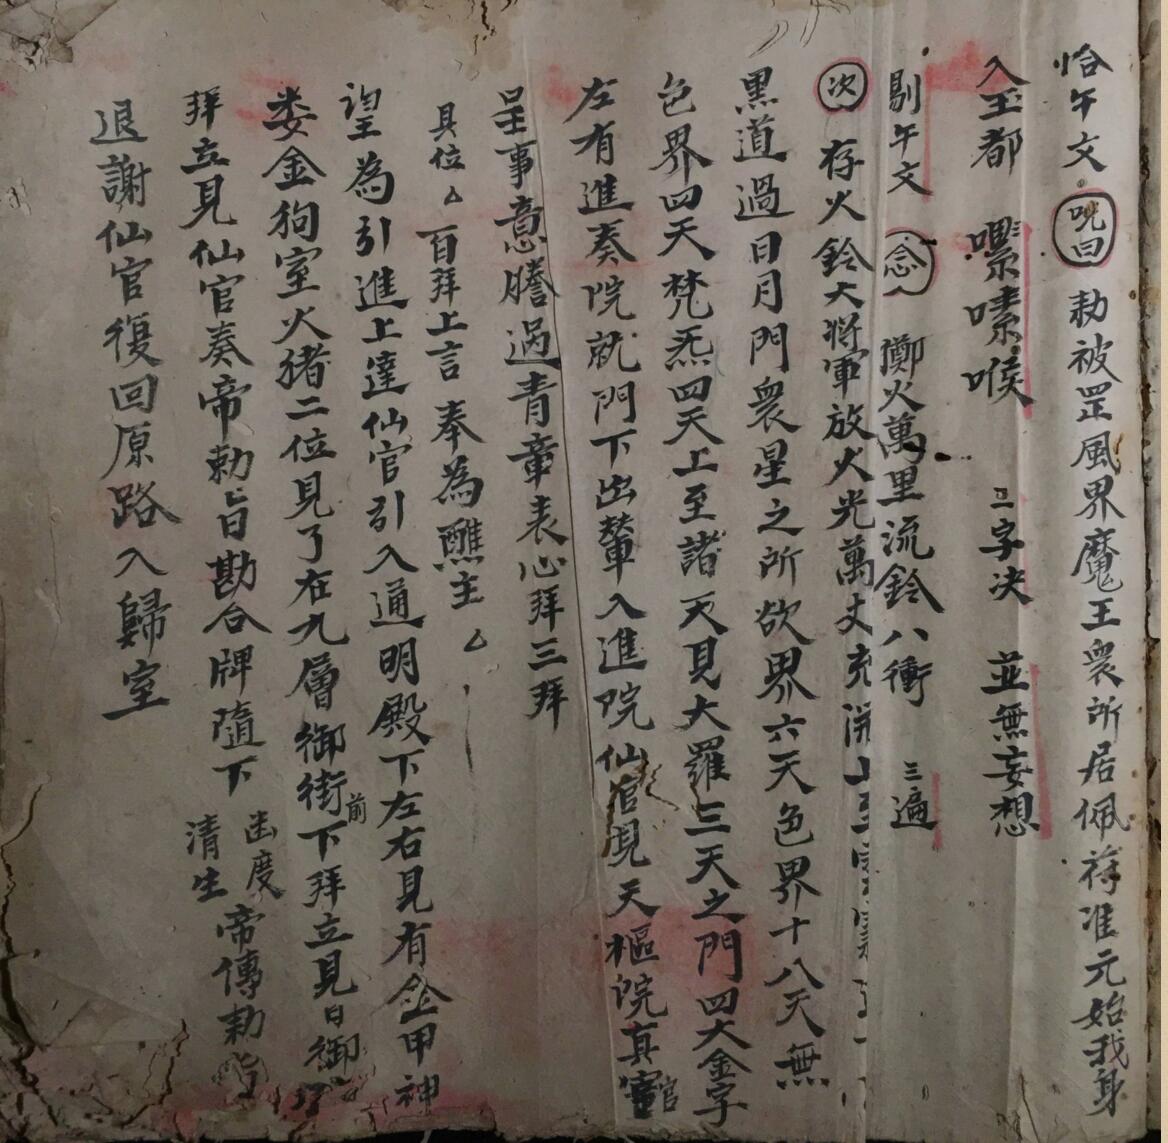 恰午文 呪曰 勅被罡風界魔王衆所居佩符准元始我身
入玉都 㘑嗉喉 二字决 並無妄想
剔午文 念 擲火萬里流鈴八衝 三遍
次 存火鈴大将軍放火光萬丈充
黒道過日月門衆星之所欲界六天色界十八天無
色界四天梵炁四天上至諸天見大羅三天之門四大金字
左有進奏院就門下出輦入進院仙官現天樞院真官
呈事意謄過青章表心拜三拜
具位△百拜上言 奉為醮主△
望為引進上達仙官引入通明殿下左右見有金甲神
娄金狗室火猪二位見了在九層御街前下拜立見御
拜立見仙官奏帝勅旨勘合牌隨下 清生 度 帝傳勅
退謝仙官復回原路入歸室